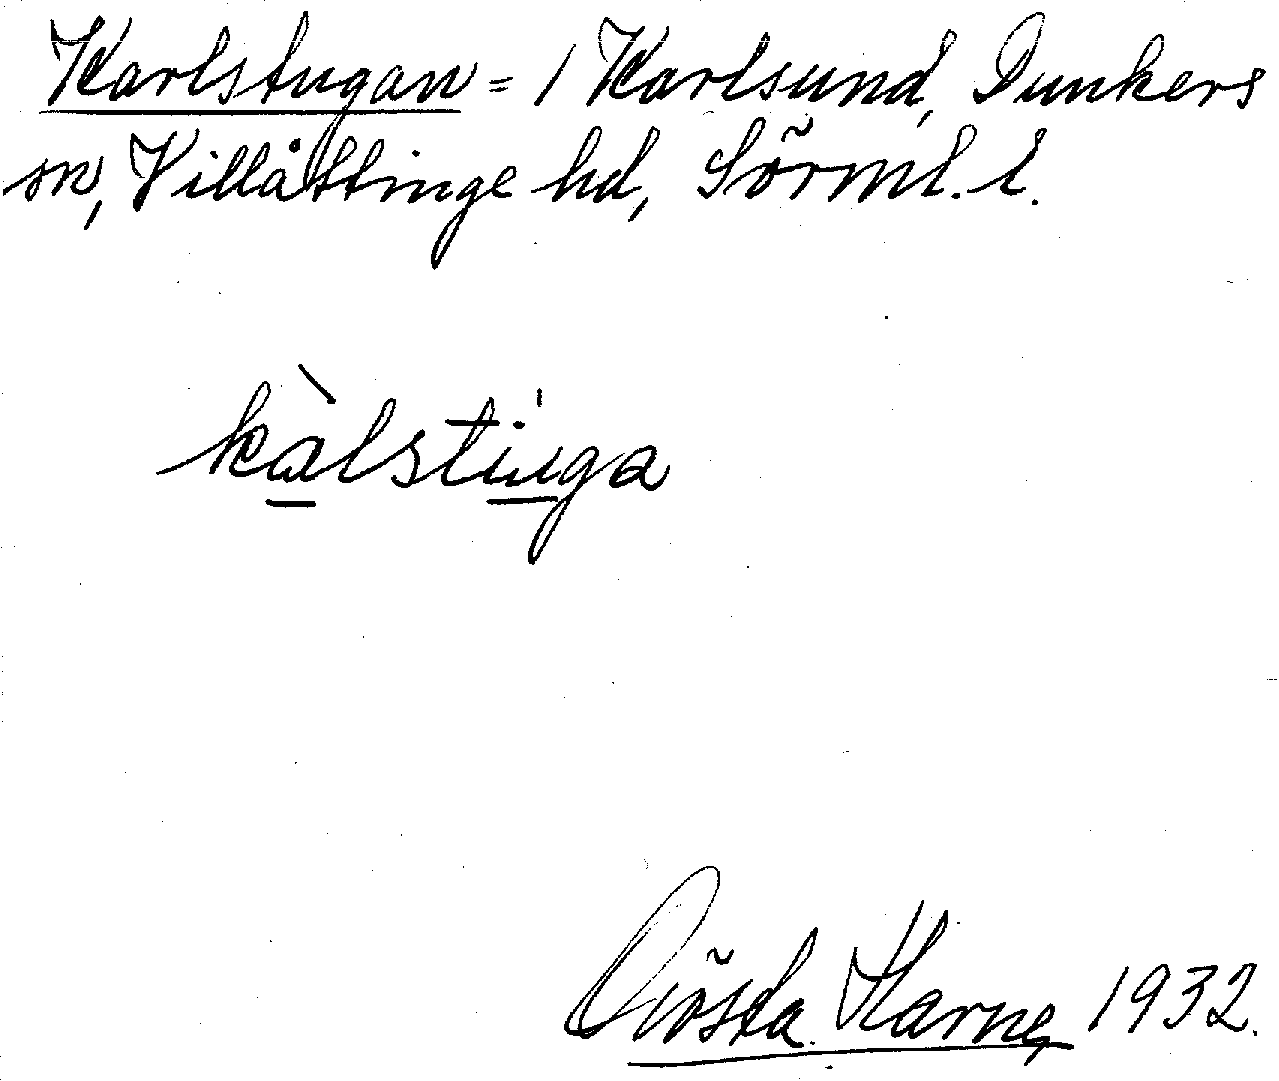 Karlstugan = 1 Karlsund, Dunkers
sn, Villåttinge hd, Sörml. l.
kàlstu̇ga
Gösta Karne, 1932.